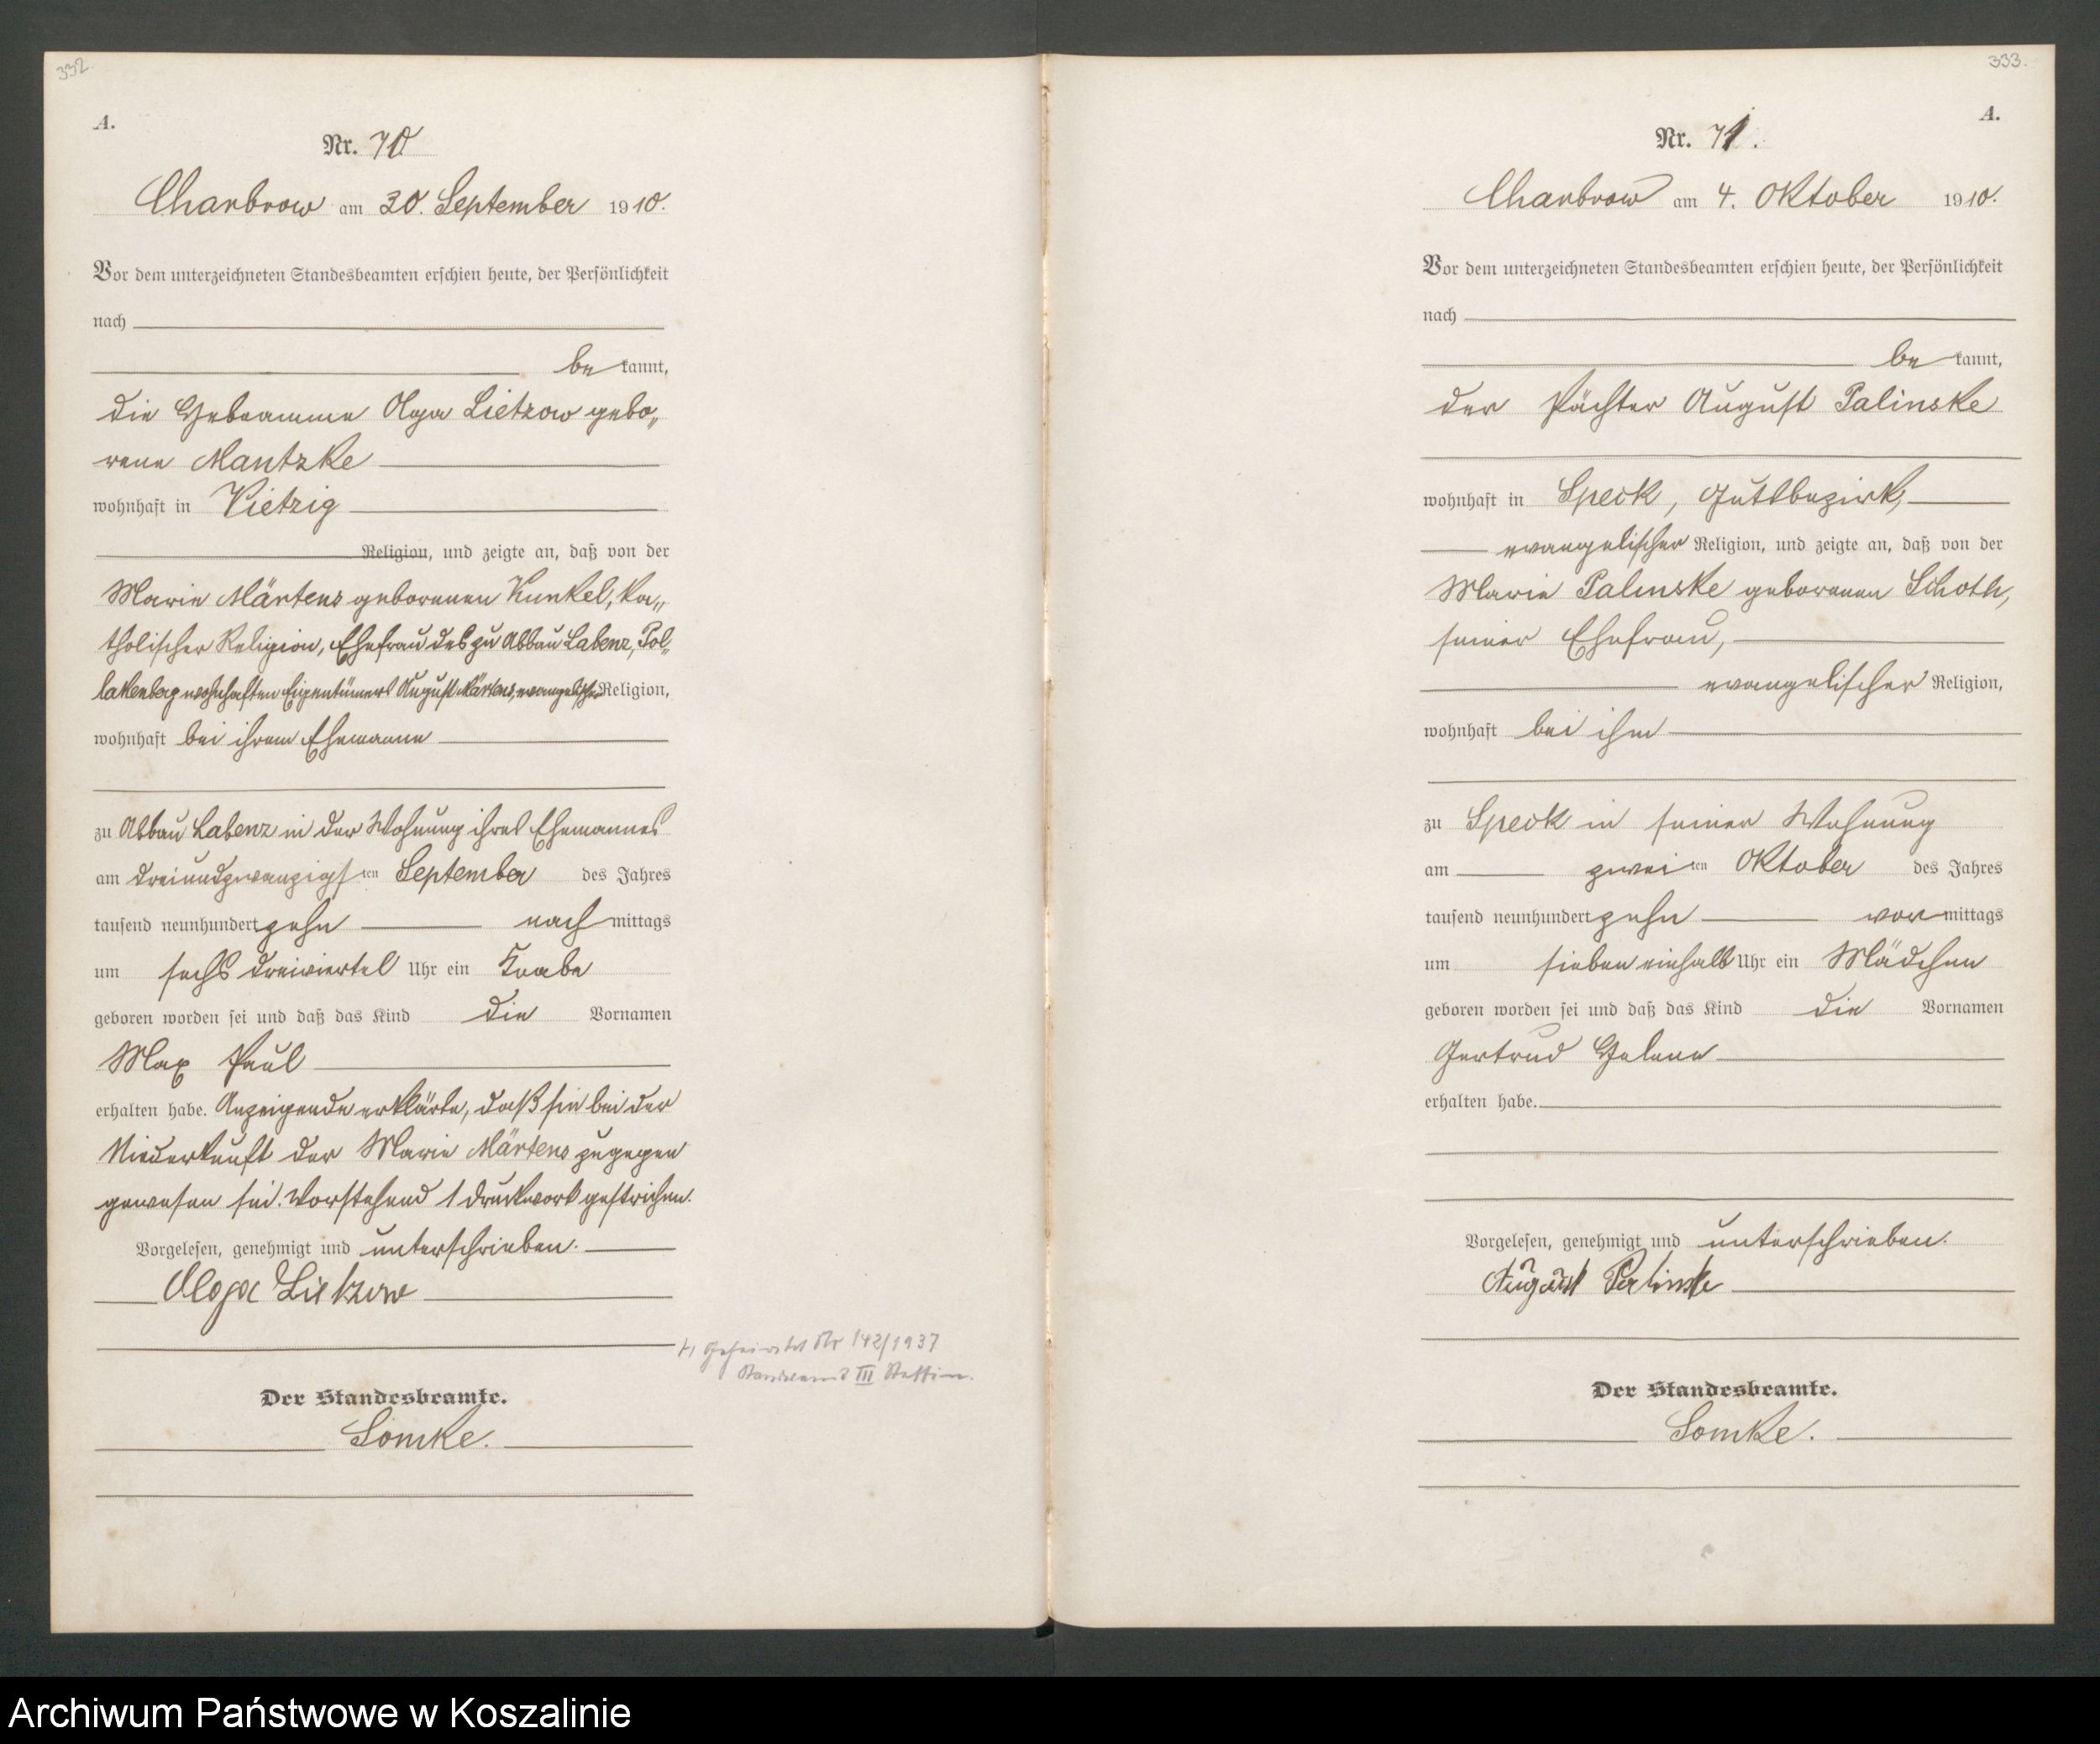 332.
A.
Nr. 70
Charbrow am 30. September 1910.
Vor dem unterzeichneten Standesbeamten erschien heute, der Persönlichkeit
nach
be kannt,
die Hebeamme Olga Lietzow gebo„
rene Mantzke
wohnhaft in Vietzig
Religion, und zeigte an, daß von der
Marie Märtens geborenen Kunkel, ka„
tholischer Religion, Ehefrau des zu Abbau Labenz, Pol„
lakenberg wohnhaften Eigentümers August Märtens, evangelischer Religion,
wohnhaft bei ihrem Ehemanne
zu Abbau Labenz in der Wohnung ihres Ehemannes
am dreiundzwanzigsten September des Jahres
tausend neunhundert zehn nach mittags
um sechs dreiviertel Uhr ein Knabe
geboren worden sei und daß das Kind die Vornamen
Max Paul
erhalten habe. Anzeigende erklärte, daß sie bei der
Niederkunft der Marie Märtens zugegen
gewesen sei. Vorstehend 1 Druckwort gestrichen.
Vorgelesen, genehmigt und unterschrieben.
Olga Lietzow
Geheiratet Nr 142/1937
Standesamt III Stettin.
Der Standesbeamte.
Lomke.
333.
A.
Nr. 71.
Charbrow am 4. Oktober 1910.
Vor dem unterzeichneten Standesbeamten erschien heute, der Persönlichkeit
nach
be kannt,
der Pächter August Palinske
wohnhaft in Speck, Gutsbezirk,
evangelischer Religion, und zeigte an, daß von der
Marie Palinske geborenen Schoth,
seiner Ehefrau,
evangelischer Religion,
wohnhaft bei ihm
zu Speck in seiner Wohnung
am zweiten Oktober des Jahres
tausend neunhundert zehn vor mittags
um sieben einhalb Uhr ein Mädchen
geboren worden sei und daß das Kind die Vornamen
Gertrud Helene
erhalten habe.
Vorgelesen, genehmigt und unterschrieben.
August Palinske
Der Standesbeamte.
Lomke.
Archiwum Państwowe w Koszalinie